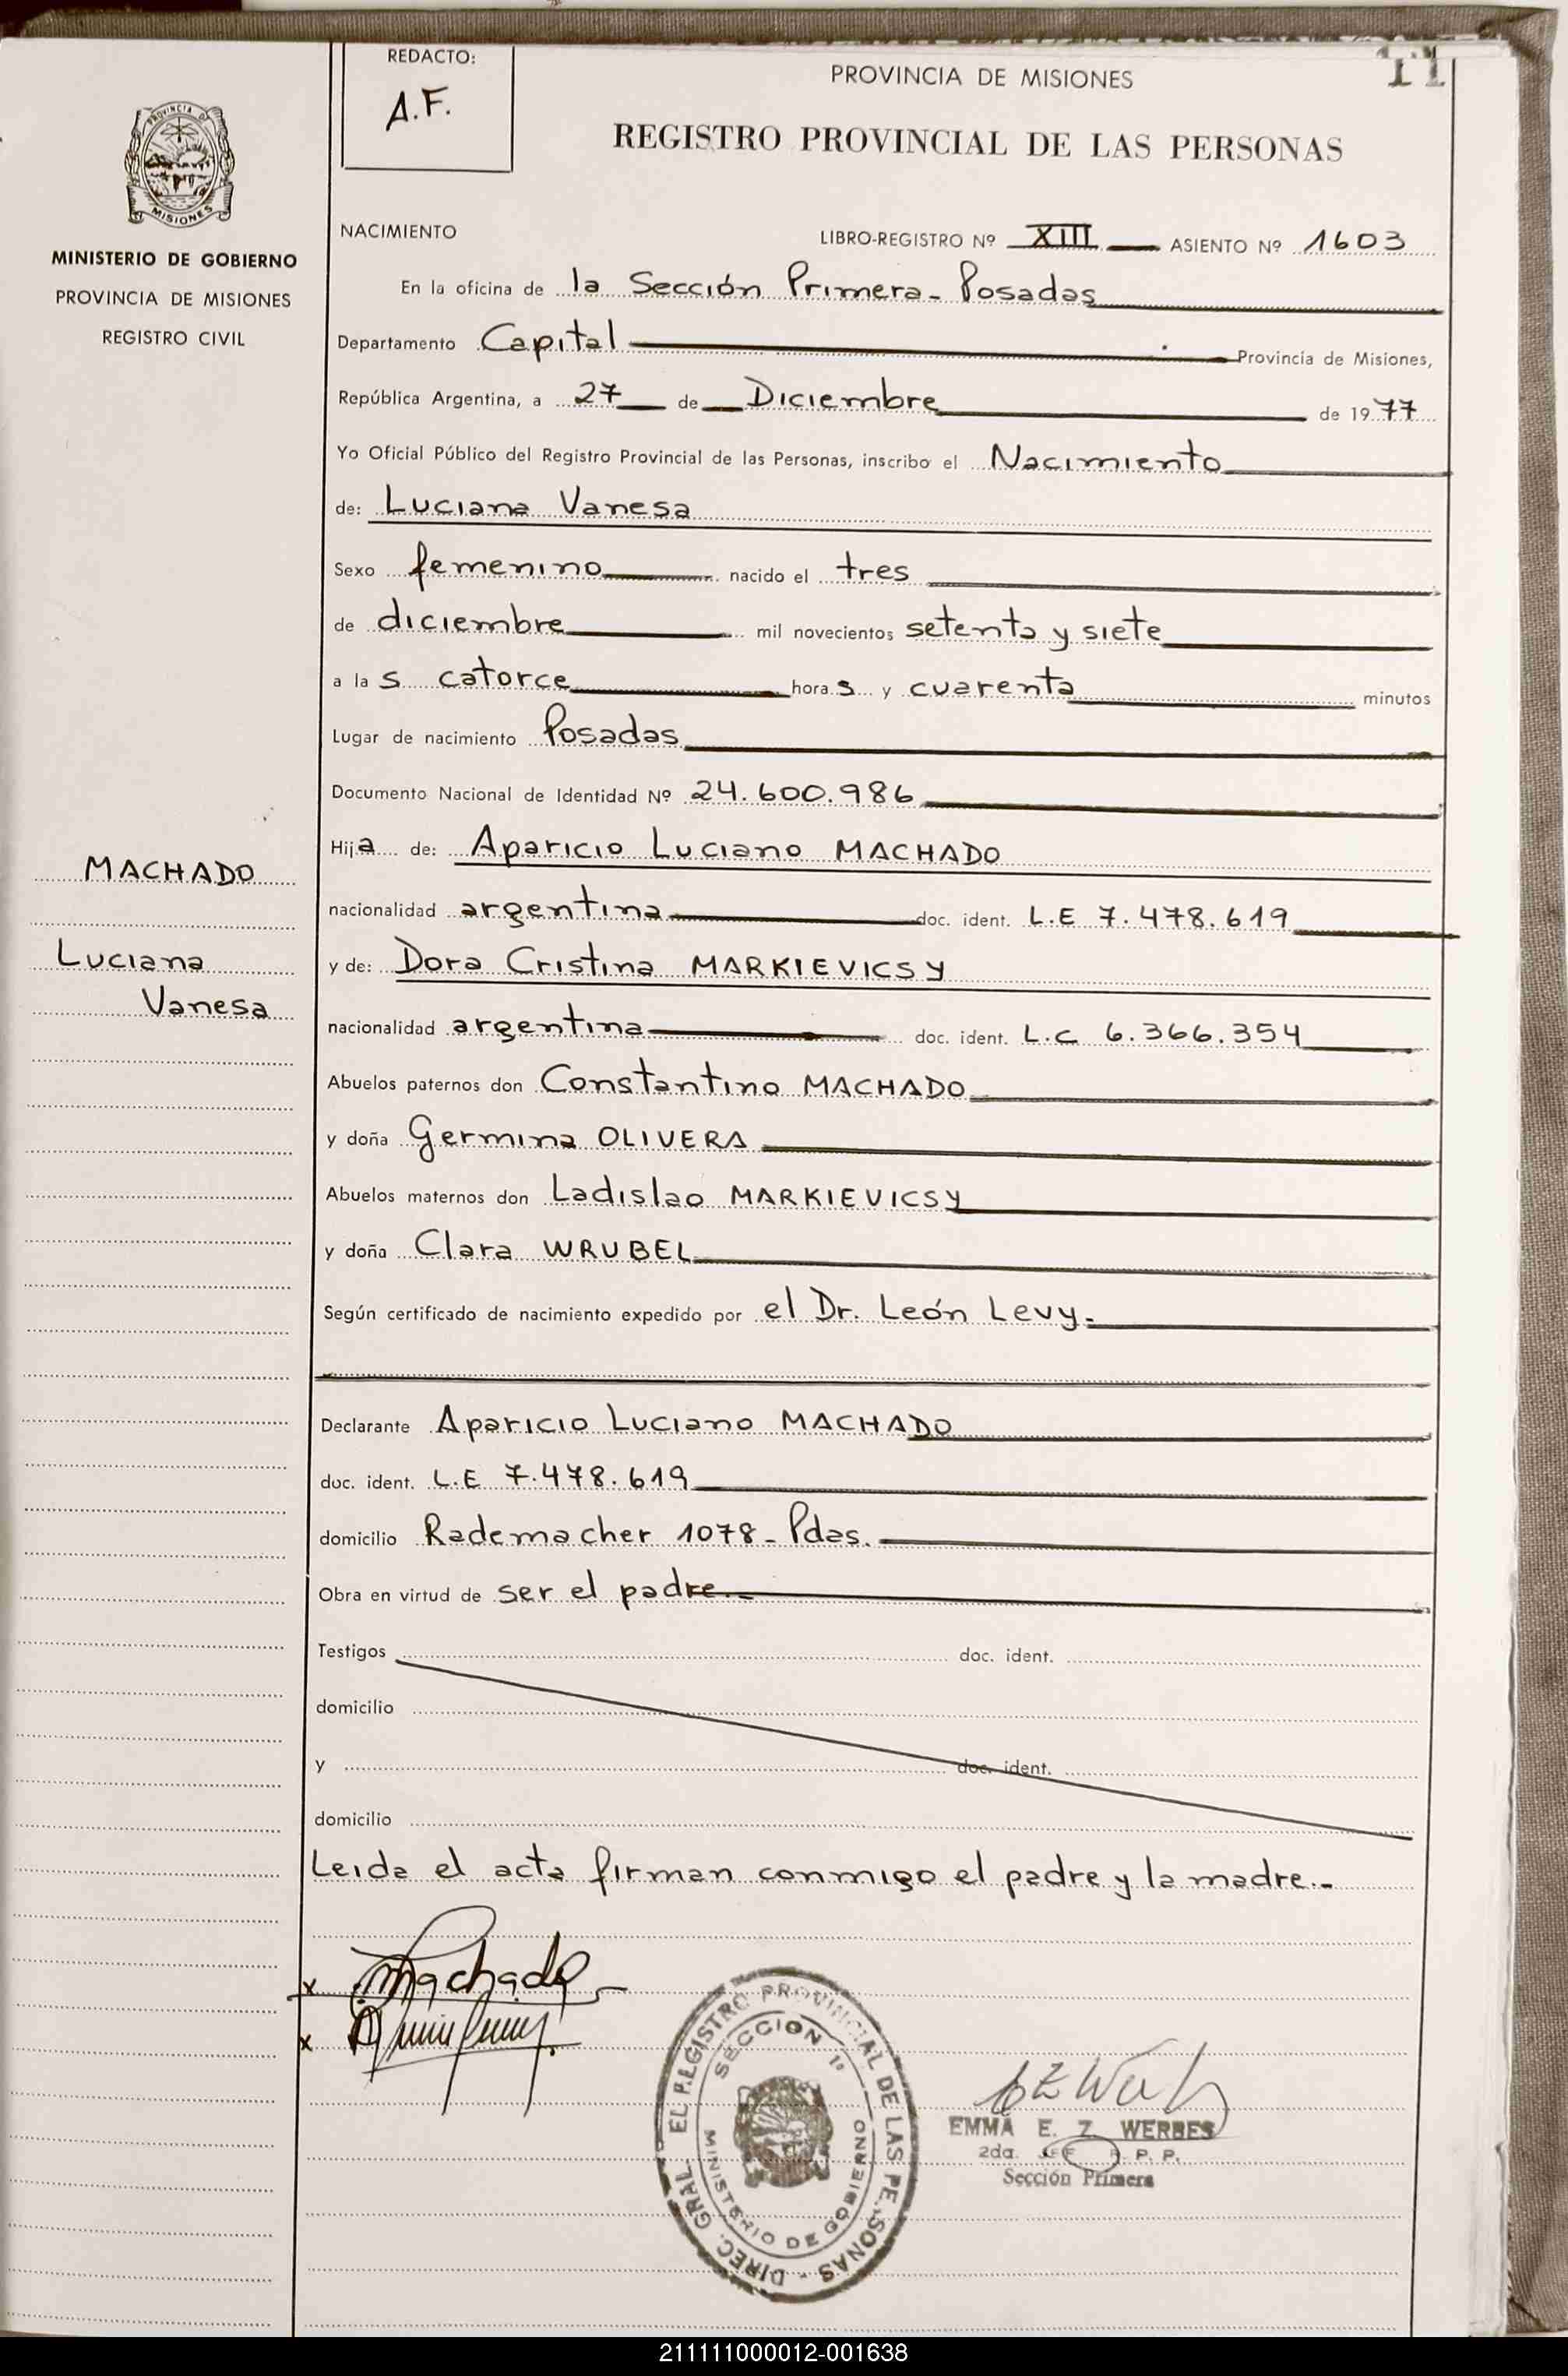 REDACTO:
A.F.
PROVINCIA DE MISIONES
11
REGISTRO PROVINCIAL DE LAS PERSONAS
PROVINCIA DE
MISIONES
MINISTERIO DE GOBIERNO
PROVINCIA DE MISIONES
REGISTRO CIVIL
NACIMIENTO LIBRO-REGISTRO Nº XIII ASIENTO Nº 1603
En la oficina de la Sección Primera - Posadas
Departamento Capital Provincia de Misiones,
República Argentina, a 27 de Diciembre de 1977
Yo Oficial Público del Registro Provincial de las Personas, inscribo el Nacimiento
de: Luciana Vanesa
Sexo femenino nacido el tres
de diciembre mil novecientos setenta y siete
a la s catorce hora s y cuarenta minutos
Lugar de nacimiento Posadas
Documento Nacional de Identidad Nº 24.600.986
Hija de: Aparicio Luciano MACHADO
nacionalidad argentina doc. ident. L.E 7.478.619
y de: Dora Cristina MARKIEVICSY
nacionalidad argentina doc. ident. L.C 6.366.354
Abuelos paternos don Constantino MACHADO
y doña Germina OLIVERA
Abuelos maternos don Ladislao MARKIEVICSY
y doña Clara WRUBEL
Según certificado de nacimiento expedido por el Dr. León Levy.-
Declarante Aparicio Luciano MACHADO
doc. ident. L.E 7.478.619
domicilio Rademacher 1078 - Pdas.
Obra en virtud de ser el padre.-
Testigos doc. ident.
domicilio
y doc. ident.
domicilio
MACHADO
Luciana
Vanesa
Leida el acta firman conmigo el padre y la madre.-
x Machado
x
DIREC. GRAL. EL REGISTRO PROVINCIAL DE LAS PERSONAS -
SECCION 1º
MINISTERIO DE GOBIERNO
EMMA E. Z. WERBES
2da. JEFE R. P. P.
Sección Primera
211111000012-001638